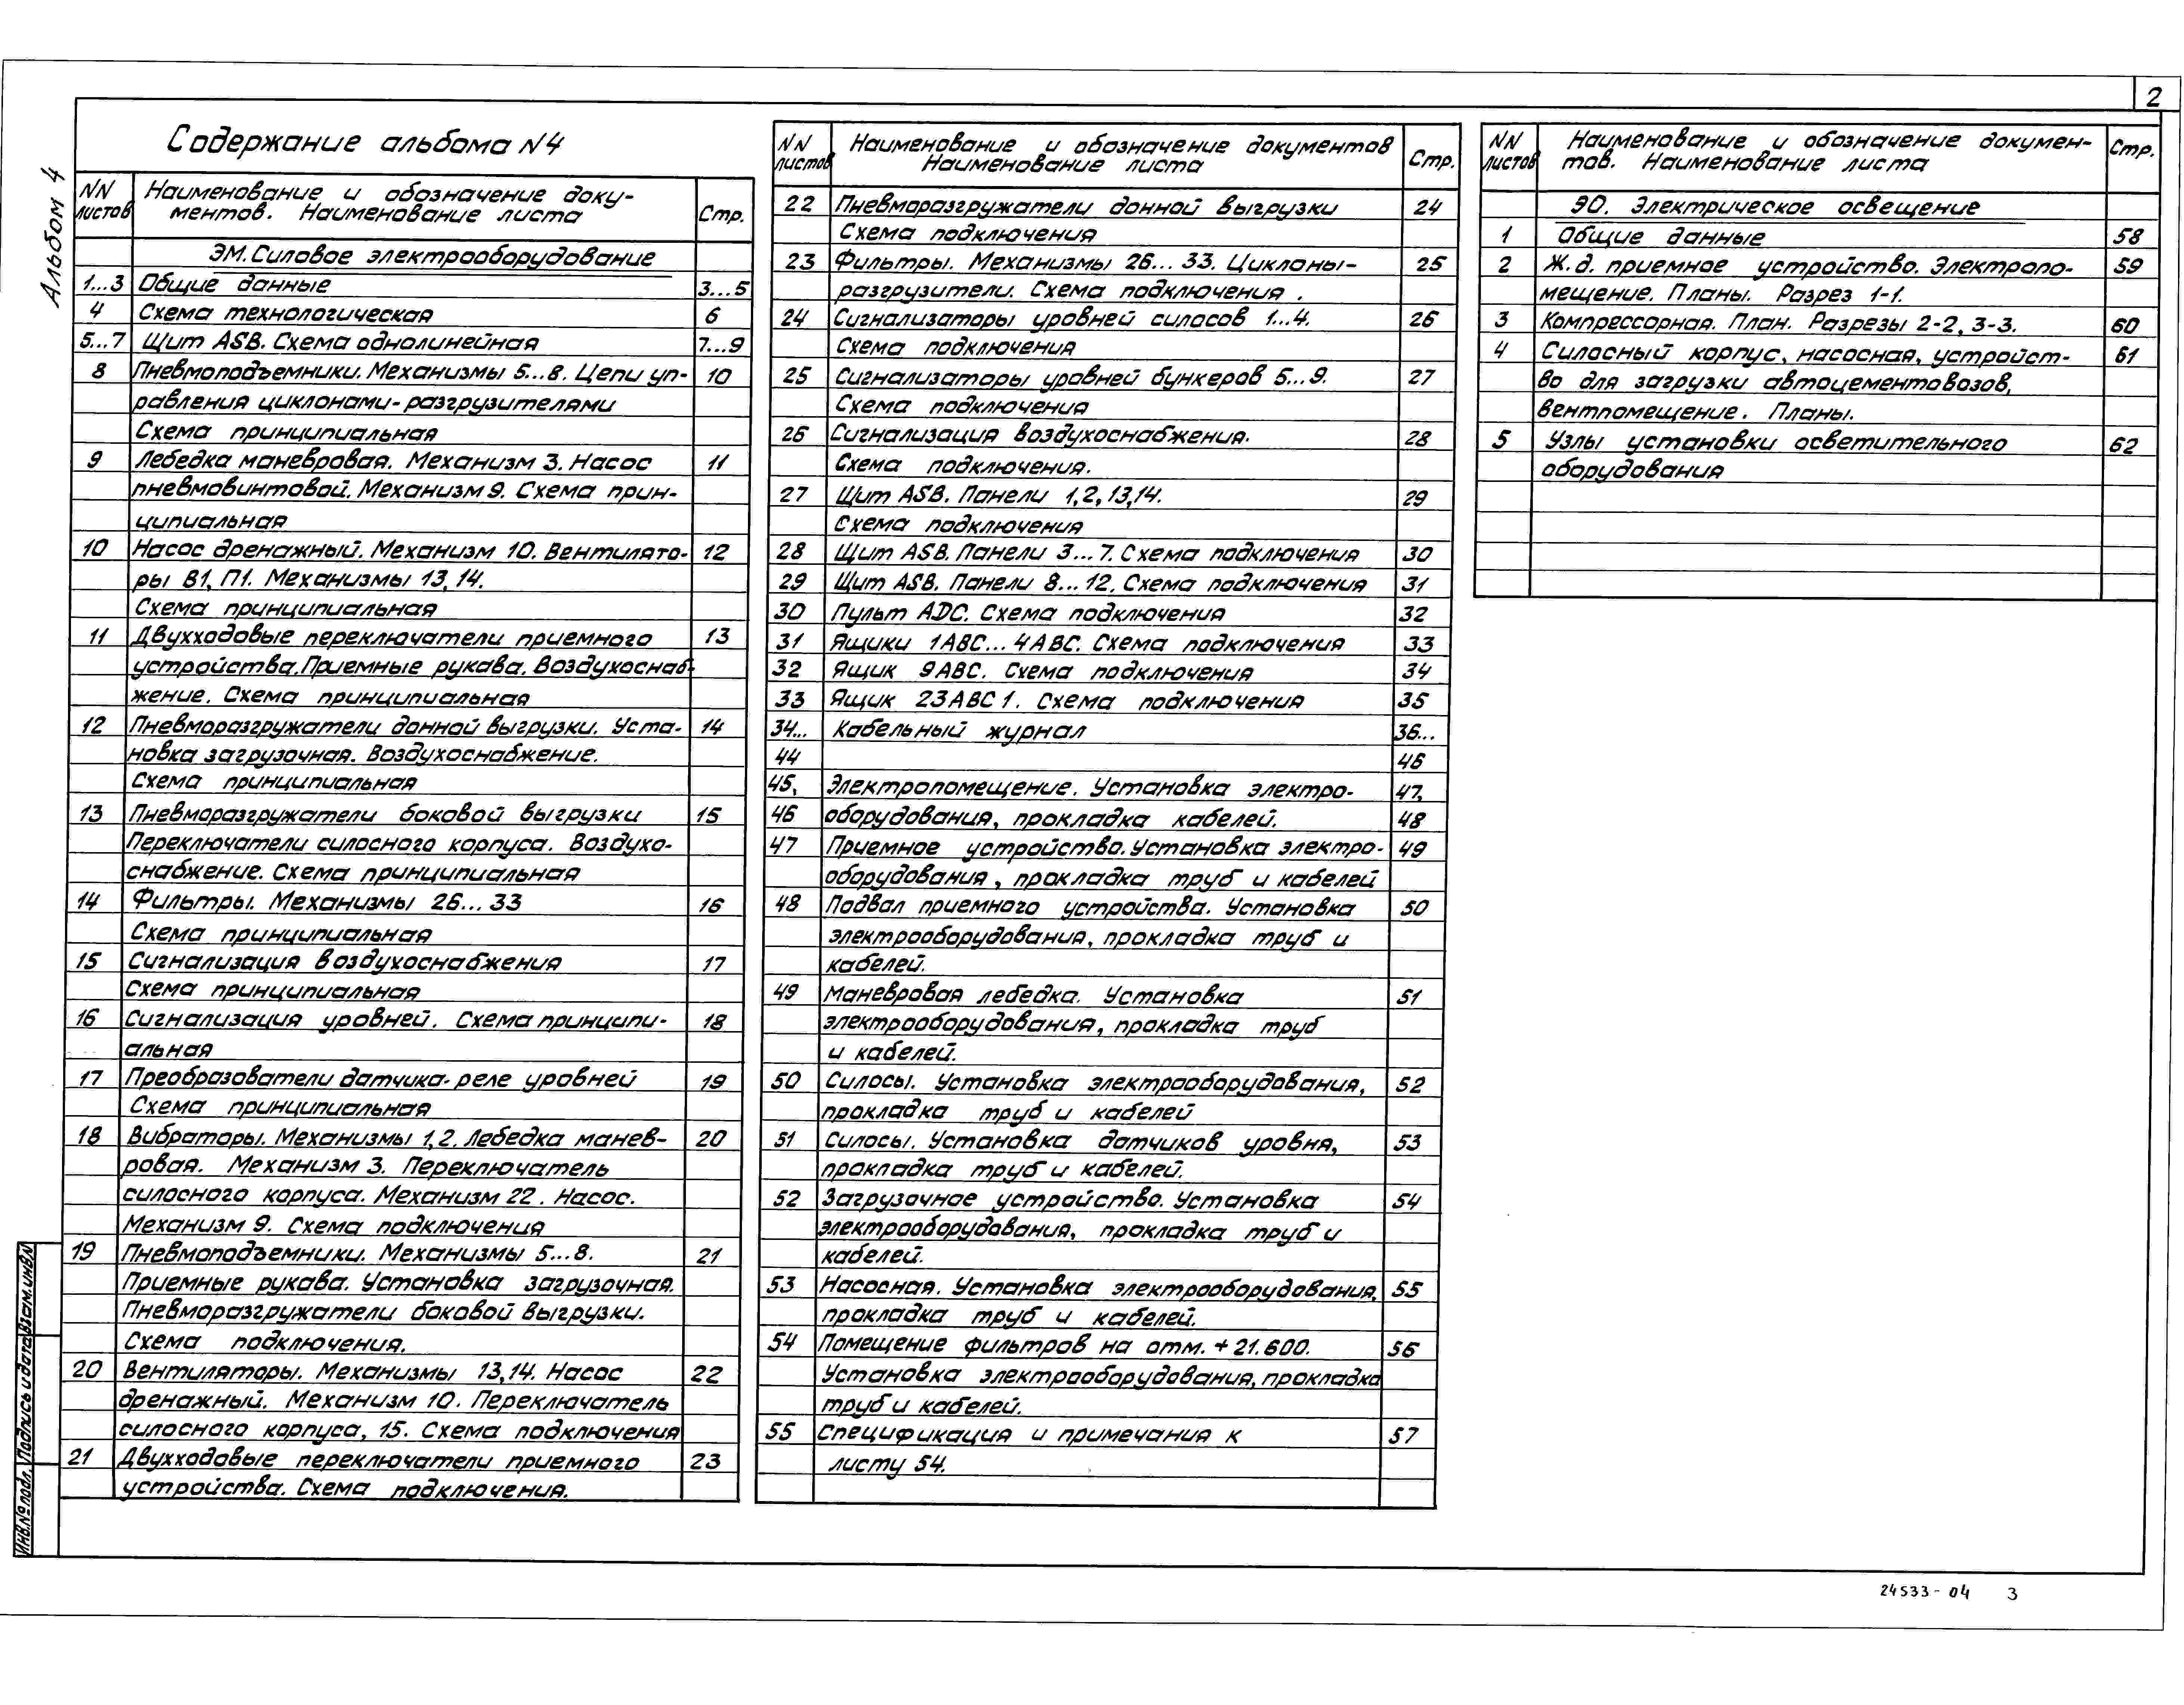 2
Альбом 4
Содержание альбома N4
NN листов Наименование и обозначение доку-
ментов. Наименование листа Стр.
ЭМ. Силовое электрооборудование
1...3 Общие данные 3...5
4 Схема технологическая 6
5...7 Щит ASB. Схема однолинейная 7...9
8 Пневмоподъемники. Механизмы 5...8. Цепи уп- 10
равления циклонами-разгрузителями
Схема принципиальная
9 Лебедка маневровая. Механизм 3. Насос 11
пневмовинтовой. Механизм 9. Схема прин-
ципиальная
10 Насос дренажный. Механизм 10. Вентилято- 12
ры В1, П1. Механизмы 13, 14.
Схема принципиальная
11 Двухходовые переключатели приемного 13
устройства. Приемные рукава. Воздухоснаб-
жение. Схема принципиальная
12 Пневморазгружатели донной выгрузки. Уста- 14
новка загрузочная. Воздухоснабжение.
Схема принципиальная
13 Пневморазгружатели боковой выгрузки 15
Переключатели силосного корпуса. Воздухо-
снабжение. Схема принципиальная
14 Фильтры. Механизмы 26...33 16
Схема принципиальная
15 Сигнализация воздухоснабжения 17
Схема принципиальная
16 Сигнализация уровней. Схема принципи- 18
альная
17 Преобразователи датчика-реле уровней 19
Схема принципиальная
18 Вибраторы. Механизмы 1, 2. Лебедка манев- 20
ровая. Механизм 3. Переключатель
силосного корпуса. Механизм 22. Насос.
Механизм 9. Схема подключения
19 Пневмоподъемники. Механизмы 5...8. 21
Приемные рукава. Установка загрузочная.
Пневморазгружатели боковой выгрузки.
Схема подключения.
20 Вентиляторы. Механизмы 13, 14. Насос 22
дренажный. Механизм 10. Переключатель
силосного корпуса, 15. Схема подключения
21 Двухходовые переключатели приемного 23
устройства. Схема подключения.
NN листов Наименование и обозначение документов
Наименование листа Стр.
22 Пневморазгружатели донной выгрузки 24
Схема подключения
23 Фильтры. Механизмы 26...33. Циклоны- 25
разгрузители. Схема подключения.
24 Сигнализаторы уровней силосов 1...4. 26
Схема подключения
25 Сигнализаторы уровней бункеров 5...9. 27
Схема подключения
26 Сигнализация воздухоснабжения. 28
Схема подключения.
27 Щит ASB. Панели 1, 2, 13, 14. 29
Схема подключения
28 Щит ASB. Панели 3...7. Схема подключения 30
29 Щит ASB. Панели 8...12. Схема подключения 31
30 Пульт ADC. Схема подключения 32
31 Ящики 1АВС...4АВС. Схема подключения 33
32 Ящик 9АВС. Схема подключения 34
33 Ящик 23АВС1. Схема подключения 35
34... Кабельный журнал 36...
44 46
45, Электропомещение. Установка электро- 47,
46 оборудования, прокладка кабелей. 48
47 Приемное устройство. Установка электро- 49
оборудования, прокладка труб и кабелей
48 Подвал приемного устройства. Установка 50
электрооборудования, прокладка труб и
кабелей.
49 Маневровая лебедка. Установка 51
электрооборудования, прокладка труб
и кабелей.
50 Силосы. Установка электрооборудования, 52
прокладка труб и кабелей
51 Силосы. Установка датчиков уровня, 53
прокладка труб и кабелей.
52 Загрузочное устройство. Установка 54
электрооборудования, прокладка труб и
кабелей.
53 Насосная. Установка электрооборудования, 55
прокладка труб и кабелей.
54 Помещение фильтров на отм. +21.600. 56
Установка электрооборудования, прокладка
труб и кабелей.
55 Спецификация и примечания к 57
листу 54.
NN листов Наименование и обозначение докумен-
тов. Наименование листа Стр.
ЭО. Электрическое освещение
1 Общие данные 58
2 Ж.д. приемное устройство. Электропо- 59
мещение. Планы. Разрез 1-1.
3 Компрессорная. План. Разрезы 2-2, 3-3. 60
4 Силосный корпус, насосная, устройст- 61
во для загрузки автоцементовозов,
вентпомещение. Планы.
5 Узлы установки осветительного 62
оборудования
Инв.№ подл. Подпись и дата Взам.инв.N
24533-04 3